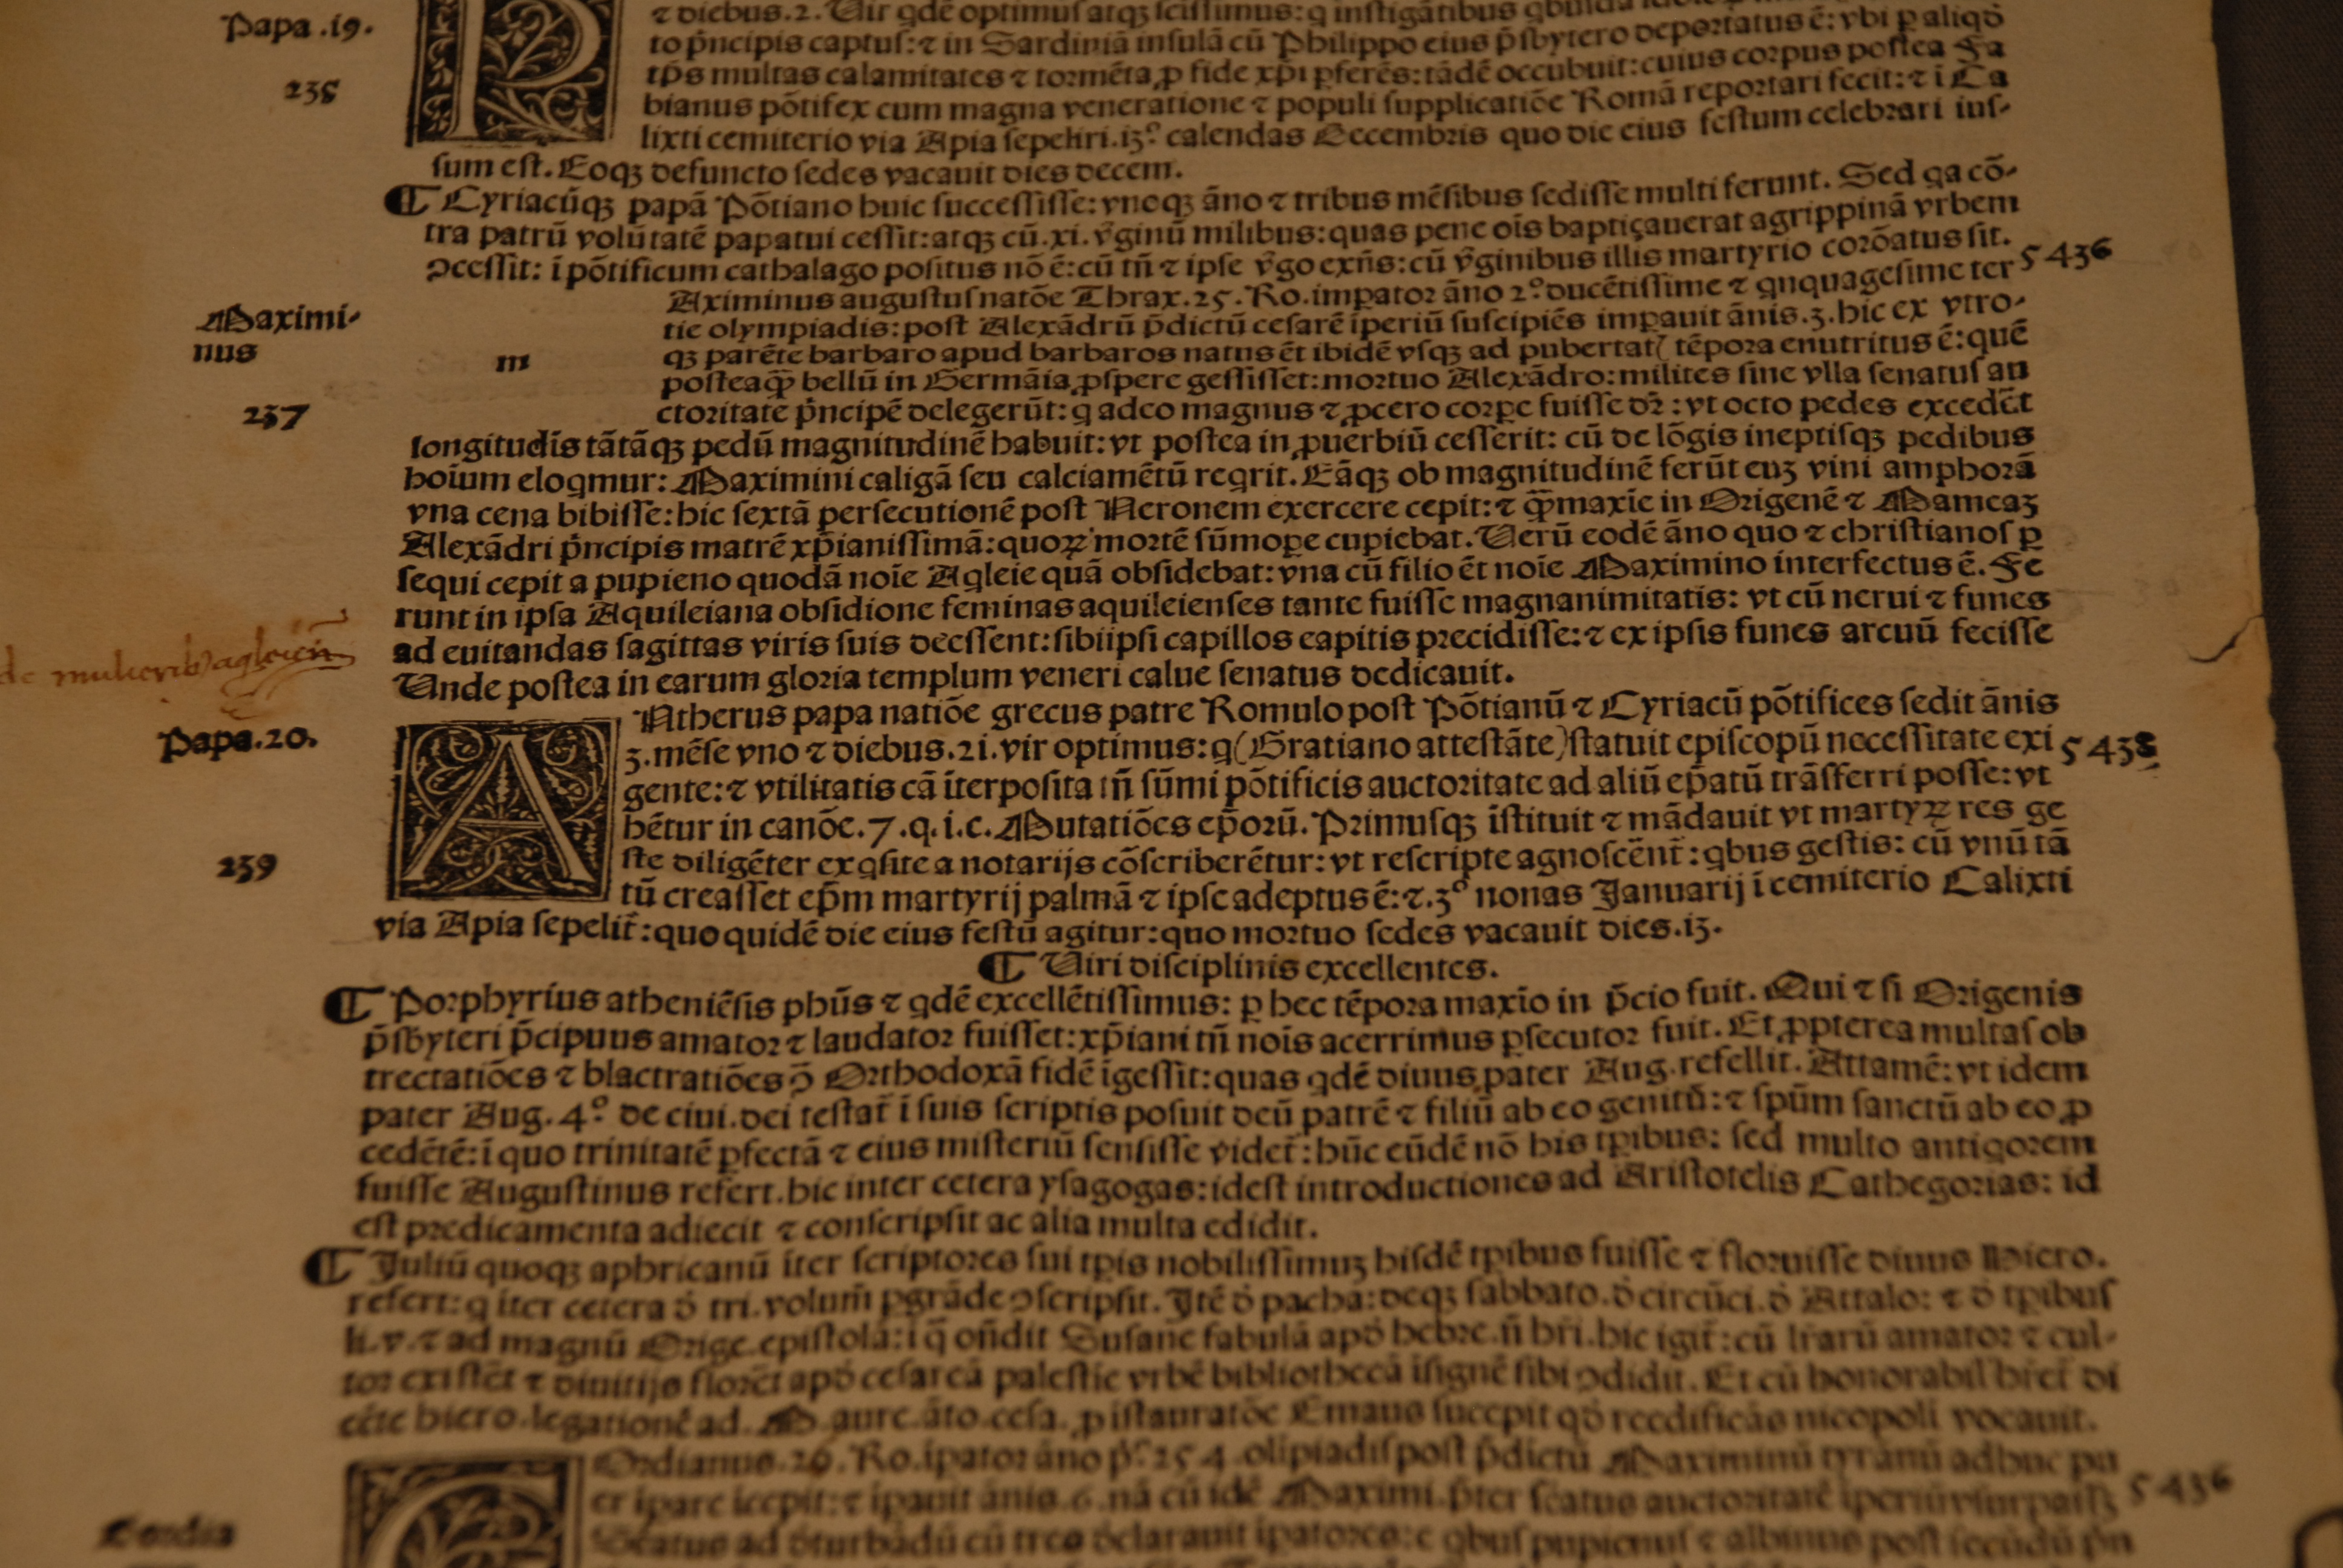 Papa .19.
⁊ diebus.2. Uir qdē optimuſ atqꝫ ſciſſimus: q inſtigātibus
to pͥncipis captuſ: ⁊ in Sardiniā inſulā cū Philippo eius pͥſbytero deportatus ē: vbi ꝑ aliqͦ
tp̄s multas calamitates ⁊ tormēta ꝓ fide xp̄i ꝑferēs: tādē occubuit: cuius corpus poſtea Fa
238
bianus pōtifex cum magna veneratione ⁊ populi ſupplicatiōe Romā reportari fecit: ⁊ ī Ca
lixti cemiterio via Apia ſepeliri.13.º calendas Decembris quo die eius feſtum celebrari iuſ-
ſum eſt. Eoqꝫ defuncto ſedes vacauit dies decem.
¶ Cyriacūqꝫ papā Pōtiano huic ſucceſſiſſe: vnoqꝫ āno ⁊ tribus mēſibus ſediſſe multi ferunt. Sed qa cō-
tra patrū volūtatē papatui ceſſit: atqꝫ cū .xi. v̄ginū milibus: quas pene oīs baptiçauerat agrippinā vrbem
ↄceſſit: ī pōtificum cathalago poſitus nō ē: cū tn̄ ⁊ ipſe v̄go exn̄s: cū v̄ginibus illis martyrio corōatus ſit.
5436
Maximi-
nus
m
Aximinus auguſtuſ natōe Thrax.25. Ro. imꝑator āno 2.º ducētiſſime ⁊ qnquageſime ter
tie olympiadis: poſt Alexādrū p̄dictū ceſarē īperiū ſuſcipiēs imꝑauit ānis.3. hic ex vtro-
qꝫ parēte barbaro apud barbaros natus ēt ibidē vſqꝫ ad pubertatꝭ tēpora enutritus ē: quē
poſteaqꝙ̄ bellū in Germāia ꝓſpere geſſiſſet: mortuo Alexādro: milites ſine vlla ſenatuſ au
237
ctoritate pͥncipē delegerūt: q adeo magnus ⁊ ꝓcero corꝑe fuiſſe dr̄: vt octo pedes excedēt
longitudīs tātāqꝫ pedū magnitudinē habuit: vt poſtea in ꝓuerbiū ceſſerit: cū de lōgis ineptiſqꝫ pedibus
hoīum eloqmur: Maximini caligā ſeu calciamētū reqrit. Eāqꝫ ob magnitudinē ferūt euꝫ vini amphorā
vna cena bibiſſe: hic ſextā perſecutionē poſt Neronem exercere cepit: ⁊ qͫ̄maxīe in Origenē ⁊ Mameaꝫ
Alexādri pͥncipis matrē xp̄ianiſſimā: quoꝝ mortē ſūmoꝑe cupiebat. Uerū eodē āno quo ⁊ chriſtianoſ ꝑ
ſequi cepit a pupieno quodā noīe Aqleie quā obſidebat: vna cū filio ēt noīe Maximino interfectus ē. Fe
runt in ipſa Aquileiana obſidione feminas aquileienſes tante fuiſſe magnanimitatis: vt cū nerui ⁊ funes
ad euitandas ſagittas viris ſuis deeſſent: ſibiipſi capillos capitis precidiſſe: ⁊ ex ipſis funes arcuū feciſſe
de mulierib)
Unde poſtea in earum gloria templum veneri calue ſenatus dedicauit.
Papa.20.
Ntherus papa natiōe grecus patre Romulo poſt Pōtianū ⁊ Cyriacū pōtifices ſedit ānis
3. mēſe vno ⁊ diebus.21. vir optimus: q (Gratiano atteſtāte) ſtatuit epiſcopū neceſſitate exi
5438
gente: ⁊ vtilitatis cā īterpoſita tn̄ ſūmi pōtificis auctoritate ad aliū ep̄atū trāſferri poſſe: vt
hētur in canōe.7.q.i.c. Mutatiōes ep̄orū. Primuſqꝫ īſtituit ⁊ mādauit vt martyꝝ res ge
239
ſte diligēter exqſite a notarijs cōſcriberētur: vt reſcripte agnoſcēnt̄: qbus geſtis: cū vnū tā
tū creaſſet ep̄m martyrij palmā ⁊ ipſe adeptus ē: ⁊.3.º nonas Januarij ī cemiterio Calixti
via Apia ſepelit̄: quo quidē die eius feſtū agitur: quo mortuo ſedes vacauit dies.13.
¶ Uiri diſciplinis excellentes.
¶ Porphyrius atheniēſis phūs ⁊ qdē excellētiſſimus: ꝑ hec tēpora maxīo in p̄cio fuit. Qui ⁊ ſi Origenis
p̄ſbyteri p̄cipuus amator ⁊ laudator fuiſſet: xp̄iani tn̄ noīs acerrimus ꝑſecutor fuit. Et ꝓpterea multaſ ob
trectatiōes ⁊ blactratiōes ↄ̄ Orthodoxā fidē īgeſſit: quas qdē diuus pater Aug. refellit. Attamē: vt idem
pater Aug. 4.º de ciui. dei teſtat̄ ī ſuis ſcriptis poſuit deū patrē ⁊ filiū ab eo genitū: ⁊ ſpūm ſanctū ab eo ꝓ
cedētē: ī quo trinitatē ꝑfectā ⁊ eius miſteriū ſenſiſſe videt̄: hūc eūdē nō his tꝑibus: ſed multo antiqorem
fuiſſe Auguſtinus refert. hic inter cetera yſagogas: ideſt introductiones ad Ariſtotelis Cathegorias: id
eſt predicamenta adiecit ⁊ conſcripſit ac alia multa edidit.
¶ Juliū quoqꝫ aphricanū īter ſcriptores ſui tꝑis nobiliſſimuꝫ hiſdē tꝑibus fuiſſe ⁊ floruiſſe diuus Hiero.
refert: q īter cetera ꝺ̄ tri. volum̄ ꝑgrāde ↄſcripſit. Itē ꝺ̄ pacha: deqꝫ ſabbato. ꝺ̄ circūci. ꝺ̄ Attalo: ⁊ ꝺ̄ tꝑibuſ
li.v. ⁊ ad magnū Orige. epiſtolā: ī q̄ oñdit Suſane fabulā apꝺ̄ hebre. n̄ hr̄i. hic igit̄: cū lr̄arū amator ⁊ cul-
tor exiſtēt ⁊ diuitijs florēt apꝺ̄ ceſareā paleſtie vrbē bibliothecā īſignē ſibi ↄdidit. Et cū honorabil' hr̄et̄ di
cēte hiero. legationē ad. M. aure. āto. ceſa. ꝓ iſtauratōe Emaus ſuccepit qꝺ̄ reedificās nicopolī vocauit.
Ordianus.26. Ro. īpator āno pͥ.º 254. olīpiadiſ poſt p̄dictū Maximinū tyrānū adhuc pu
er īpare īcepit: ⁊ īpauit ānis.6. nā cū idē Maximi. p̄ter ſēatus auctoritatē īperiū
5436
Gordia
ſēatus ad ꝺ̄turbādū cū tres ꝺ̄clarauit īpatores: e qbuſ pupienuſ ⁊ albinus poſt ſecūdū